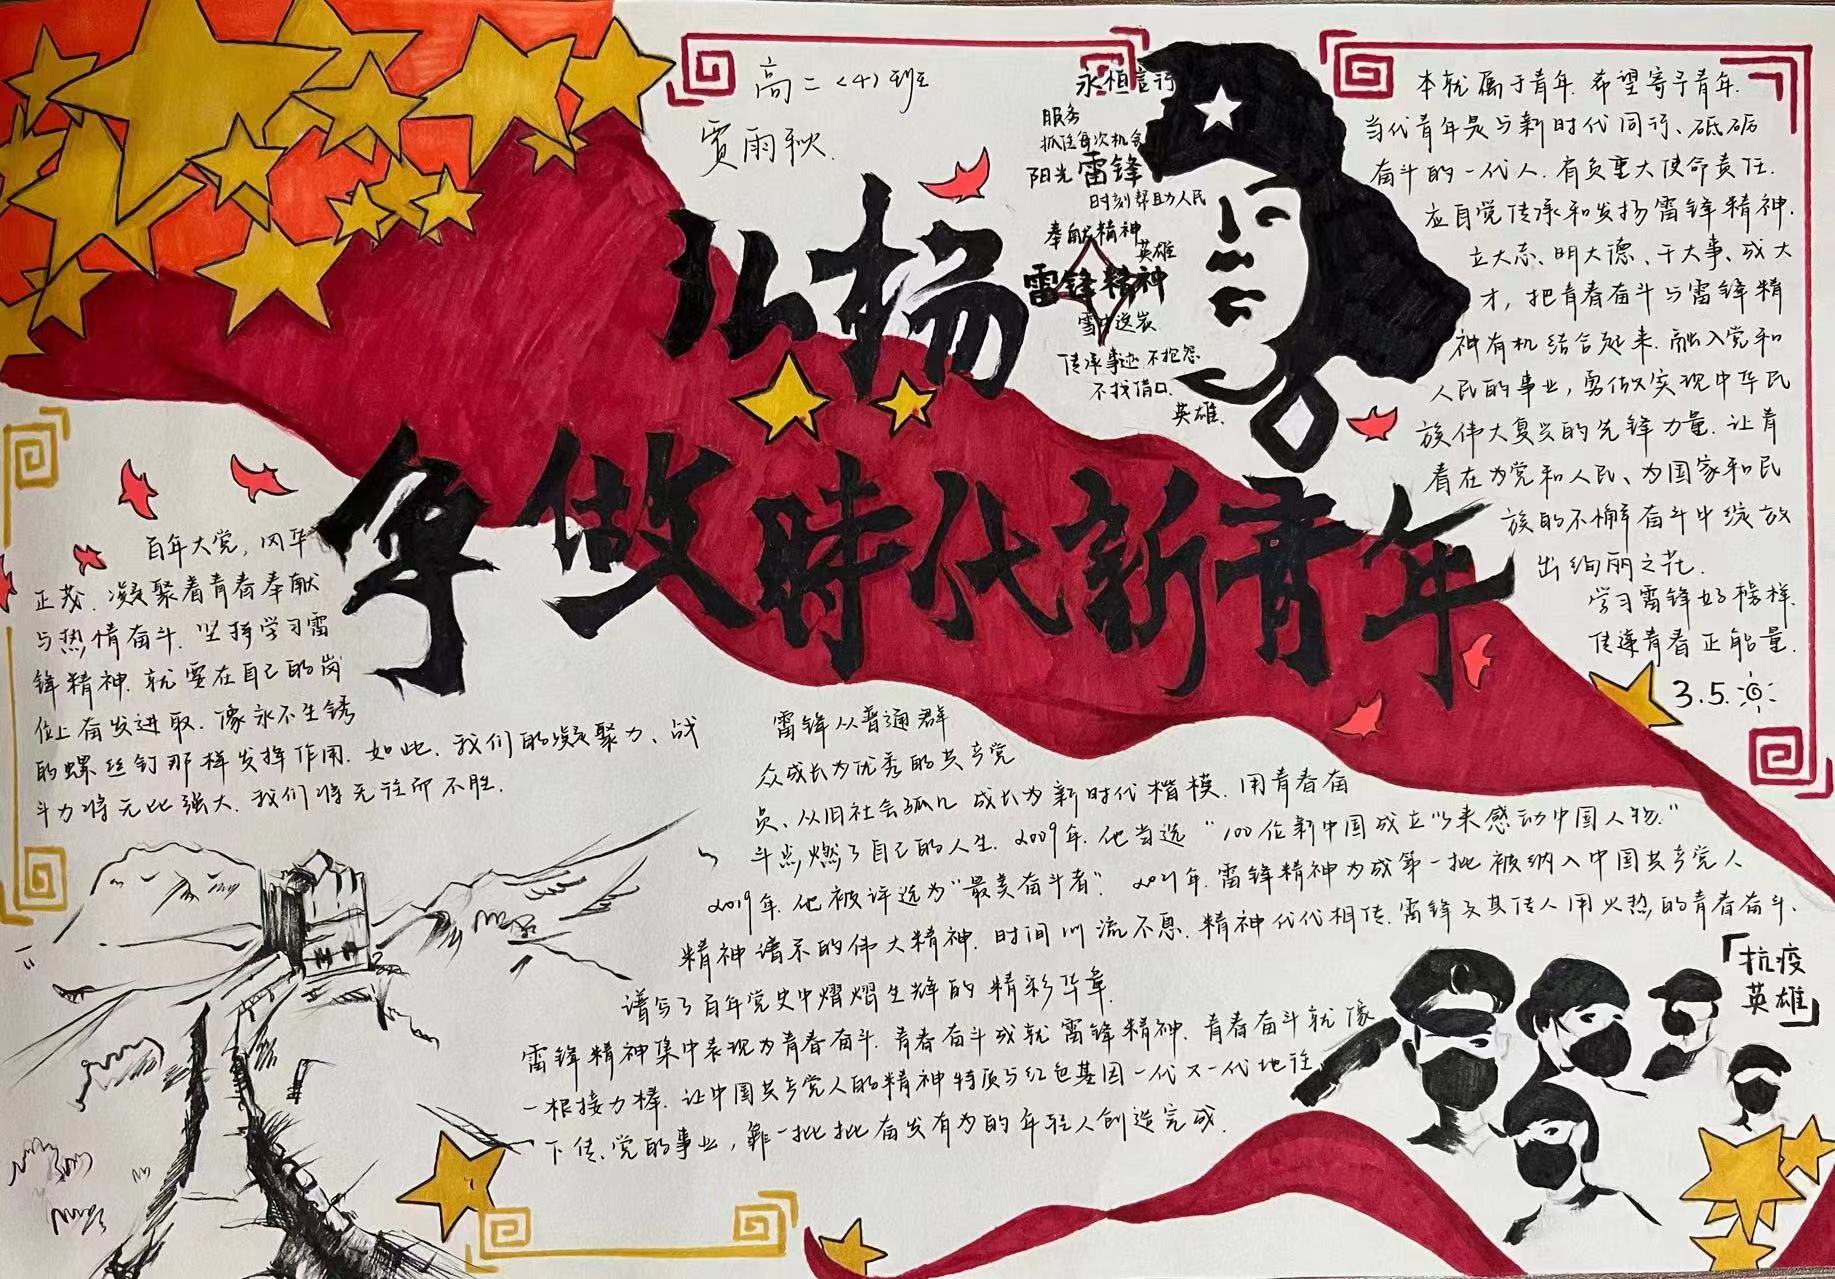 高二(4)班
贾雨秋
永恒言行
服务
抓住每次机会
阳光 雷锋
时刻帮助人民
奉献精神
英雄
雷锋精神
雪中送炭
传承事迹 不抱怨
不找借口
英雄
弘扬
争做時代新青年
本就属于青年.希望寄予青年.
当代青年是与新时代同行、砥砺
奋斗的一代人.有负重大使命责任.
应自觉传承和发扬雷锋精神.
立大志、明大德、干大事、成大
才,把青春奋斗与雷锋精
神有机结合起来.融入党和
人民的事业,勇做实现中华民
族伟大复兴的先锋力量.让青
春在为党和人民、为国家和民
族的不懈奋斗中绽放
出绚丽之花.
学习雷锋好榜样.
传递青春正能量.
3.5.
百年大党,风华
正茂.凝聚着青春奉献
与热情奋斗.坚持学习雷
锋精神.就要在自己的岗
位上奋发进取.像永不生锈
的螺丝钉那样发挥作用.如此.我们的凝聚力、战
斗力将无比强大.我们将无往而不胜.
雷锋从普通群
众成长为优秀的共产党
员、从旧社会孤儿成长为新时代楷模.用青春奋
斗点燃了自己的人生.2009年.他当选“100位新中国成立以来感动中国人物.”
2019年.他被评选为“最美奋斗者”.2021年.雷锋精神为成第一批被纳入中国共产党人
精神谱系的伟大精神.时间川流不息.精神代代相传.雷锋及其传人用火热的青春奋斗.
谱写了百年党史中熠熠生辉的精彩华章.
雷锋精神集中表现为青春奋斗.青春奋斗成就雷锋精神.青春奋斗就像
一根接力棒.让中国共产党人的精神特质与红色基因一代又一代地往
下传.党的事业,靠一批批奋发有为的年轻人创造完成.
「抗疫
英雄」